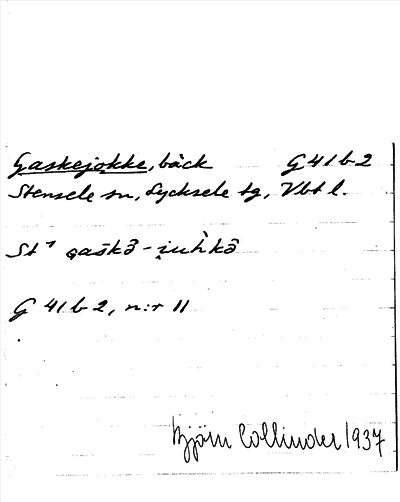 Gaskejokke, bäck G 41 b 2
Stensele sn, Lycksele tg, Vbt l.
St¹ gaskō̂ - i̯uh̀kō̂
G 41 b 2, n:r 11
Björn Collinder 1937